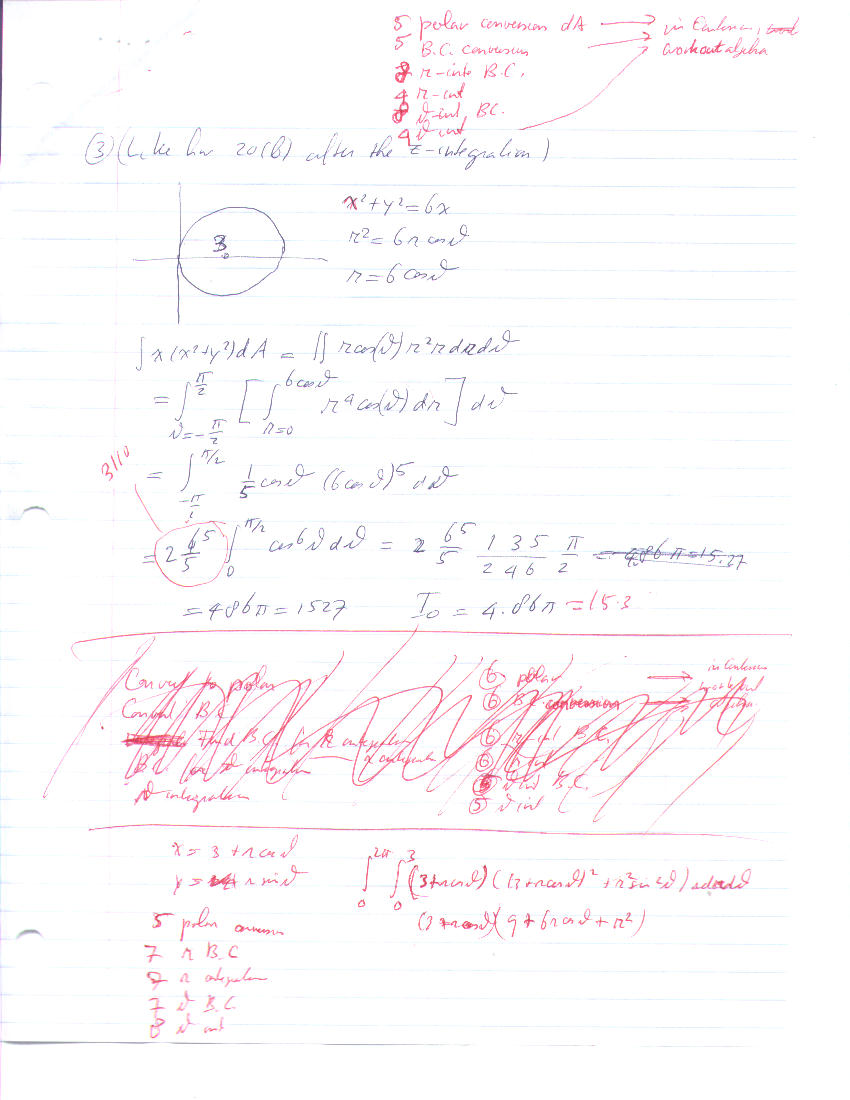 5 polar conversion dA → in Cartesian,
5 B.C. conversion → workout algebra
8 r-inte B.C.
4 r-int
8 ϑ-int, BC.
4 ϑ int
③ (Like hw 20(B) after the z-integration)
3
x²+y²=6x
r²=6r cosϑ
r=6 cosϑ
∫x(x²+y²)dA = ∬ r cos(ϑ) r² r dr dϑ
= ∫_{ϑ=-π/2}^{π/2} [∫_{r=0}^{6cosϑ} r⁴ cos(ϑ) dr] dϑ
= ∫_{-π/2}^{π/2} 1/5 cosϑ (6cosϑ)⁵ dϑ
3110
= 2 6⁵/5 ∫_0^{π/2} cos⁶ϑ dϑ = 2 6⁵/5 1/2 3/4 5/6 π/2 = 4.86π=15.27
=486π=1527 I₀ = 4.86π =15.3
Convert to polar
Convert B.C
Find B.C. for r integration
B.C. for ϑ integration
ϑ integration
⑥ polar → in Cartesian
⑥ B.C. conversion → workout algebra
⑥ r-int B.C.
⑥ r int
ϑ int B.C.
⑤ ϑ int
x = 3 + r cosϑ
y = r sinϑ
∫_0^{2π} ∫_0^3 (3+r cosϑ)((3+r cosϑ)² + r² sin²ϑ) r dr dϑ
(3+r cosϑ)(9+6r cosϑ+r²)
5 polar conversion
7 r B.C
7 r integration
7 ϑ B.C.
8 ϑ int